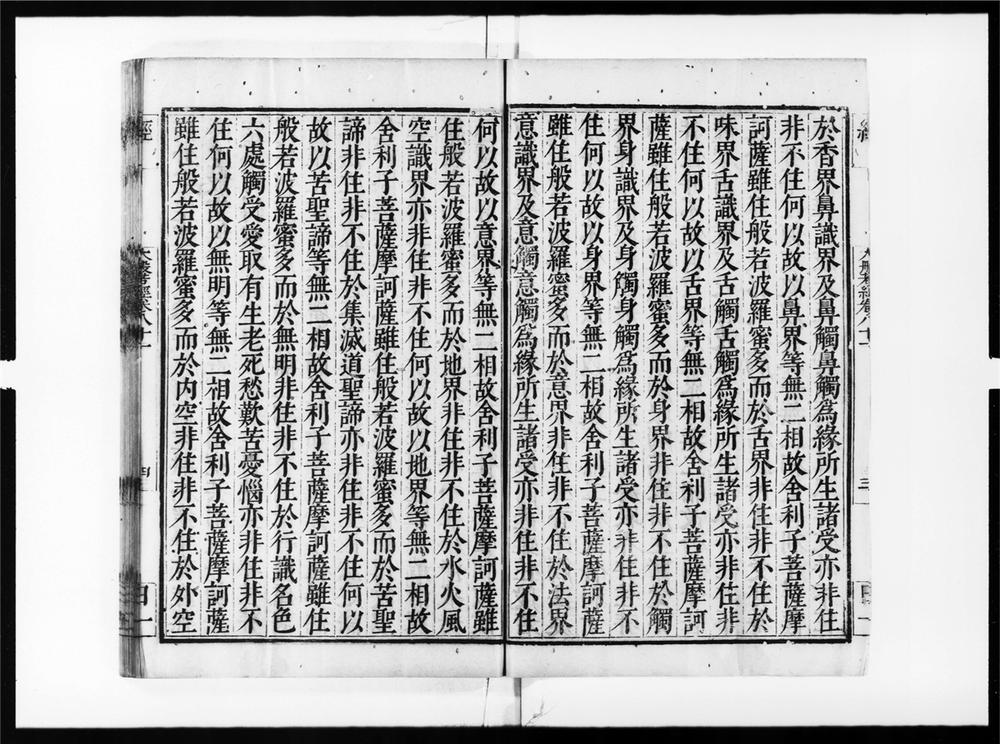 於香界鼻識界及鼻觸鼻觸爲緣所生諸受亦非住
非不住何以故以鼻界等無二相故舍利子菩薩摩
訶薩雖住般若波羅蜜多而於舌界非住非不住於
味界舌識界及舌觸舌觸爲緣所生諸受亦非住非
不住何以故以舌界等無二相故舍利子菩薩摩訶
薩雖住般若波羅蜜多而於身界非住非不住於觸
界身識界及身觸身觸爲緣所生諸受亦非住非不
住何以故以身界等無二相故舍利子菩薩摩訶薩
雖住般若波羅蜜多而於意界非住非不住於法界
意識界及意觸意觸爲緣所生諸受亦非住非不住
何以故以意界等無二相故舍利子菩薩摩訶薩雖
住般若波羅蜜多而於地界非住非不住於水火風
空識界亦非住非不住何以故以地界等無二相故
舍利子菩薩摩訶薩雖住般若波羅蜜多而於苦聖
諦非住非不住於集滅道聖諦亦非住非不住何以
故以苦聖諦等無二相故舍利子菩薩摩訶薩雖住
般若波羅蜜多而於無明非住非不住於行識名色
六處觸受愛取有生老死愁歎苦憂惱亦非住非不
住何以故以無明等無二相故舍利子菩薩摩訶薩
雖住般若波羅蜜多而於內空非住非不住於外空